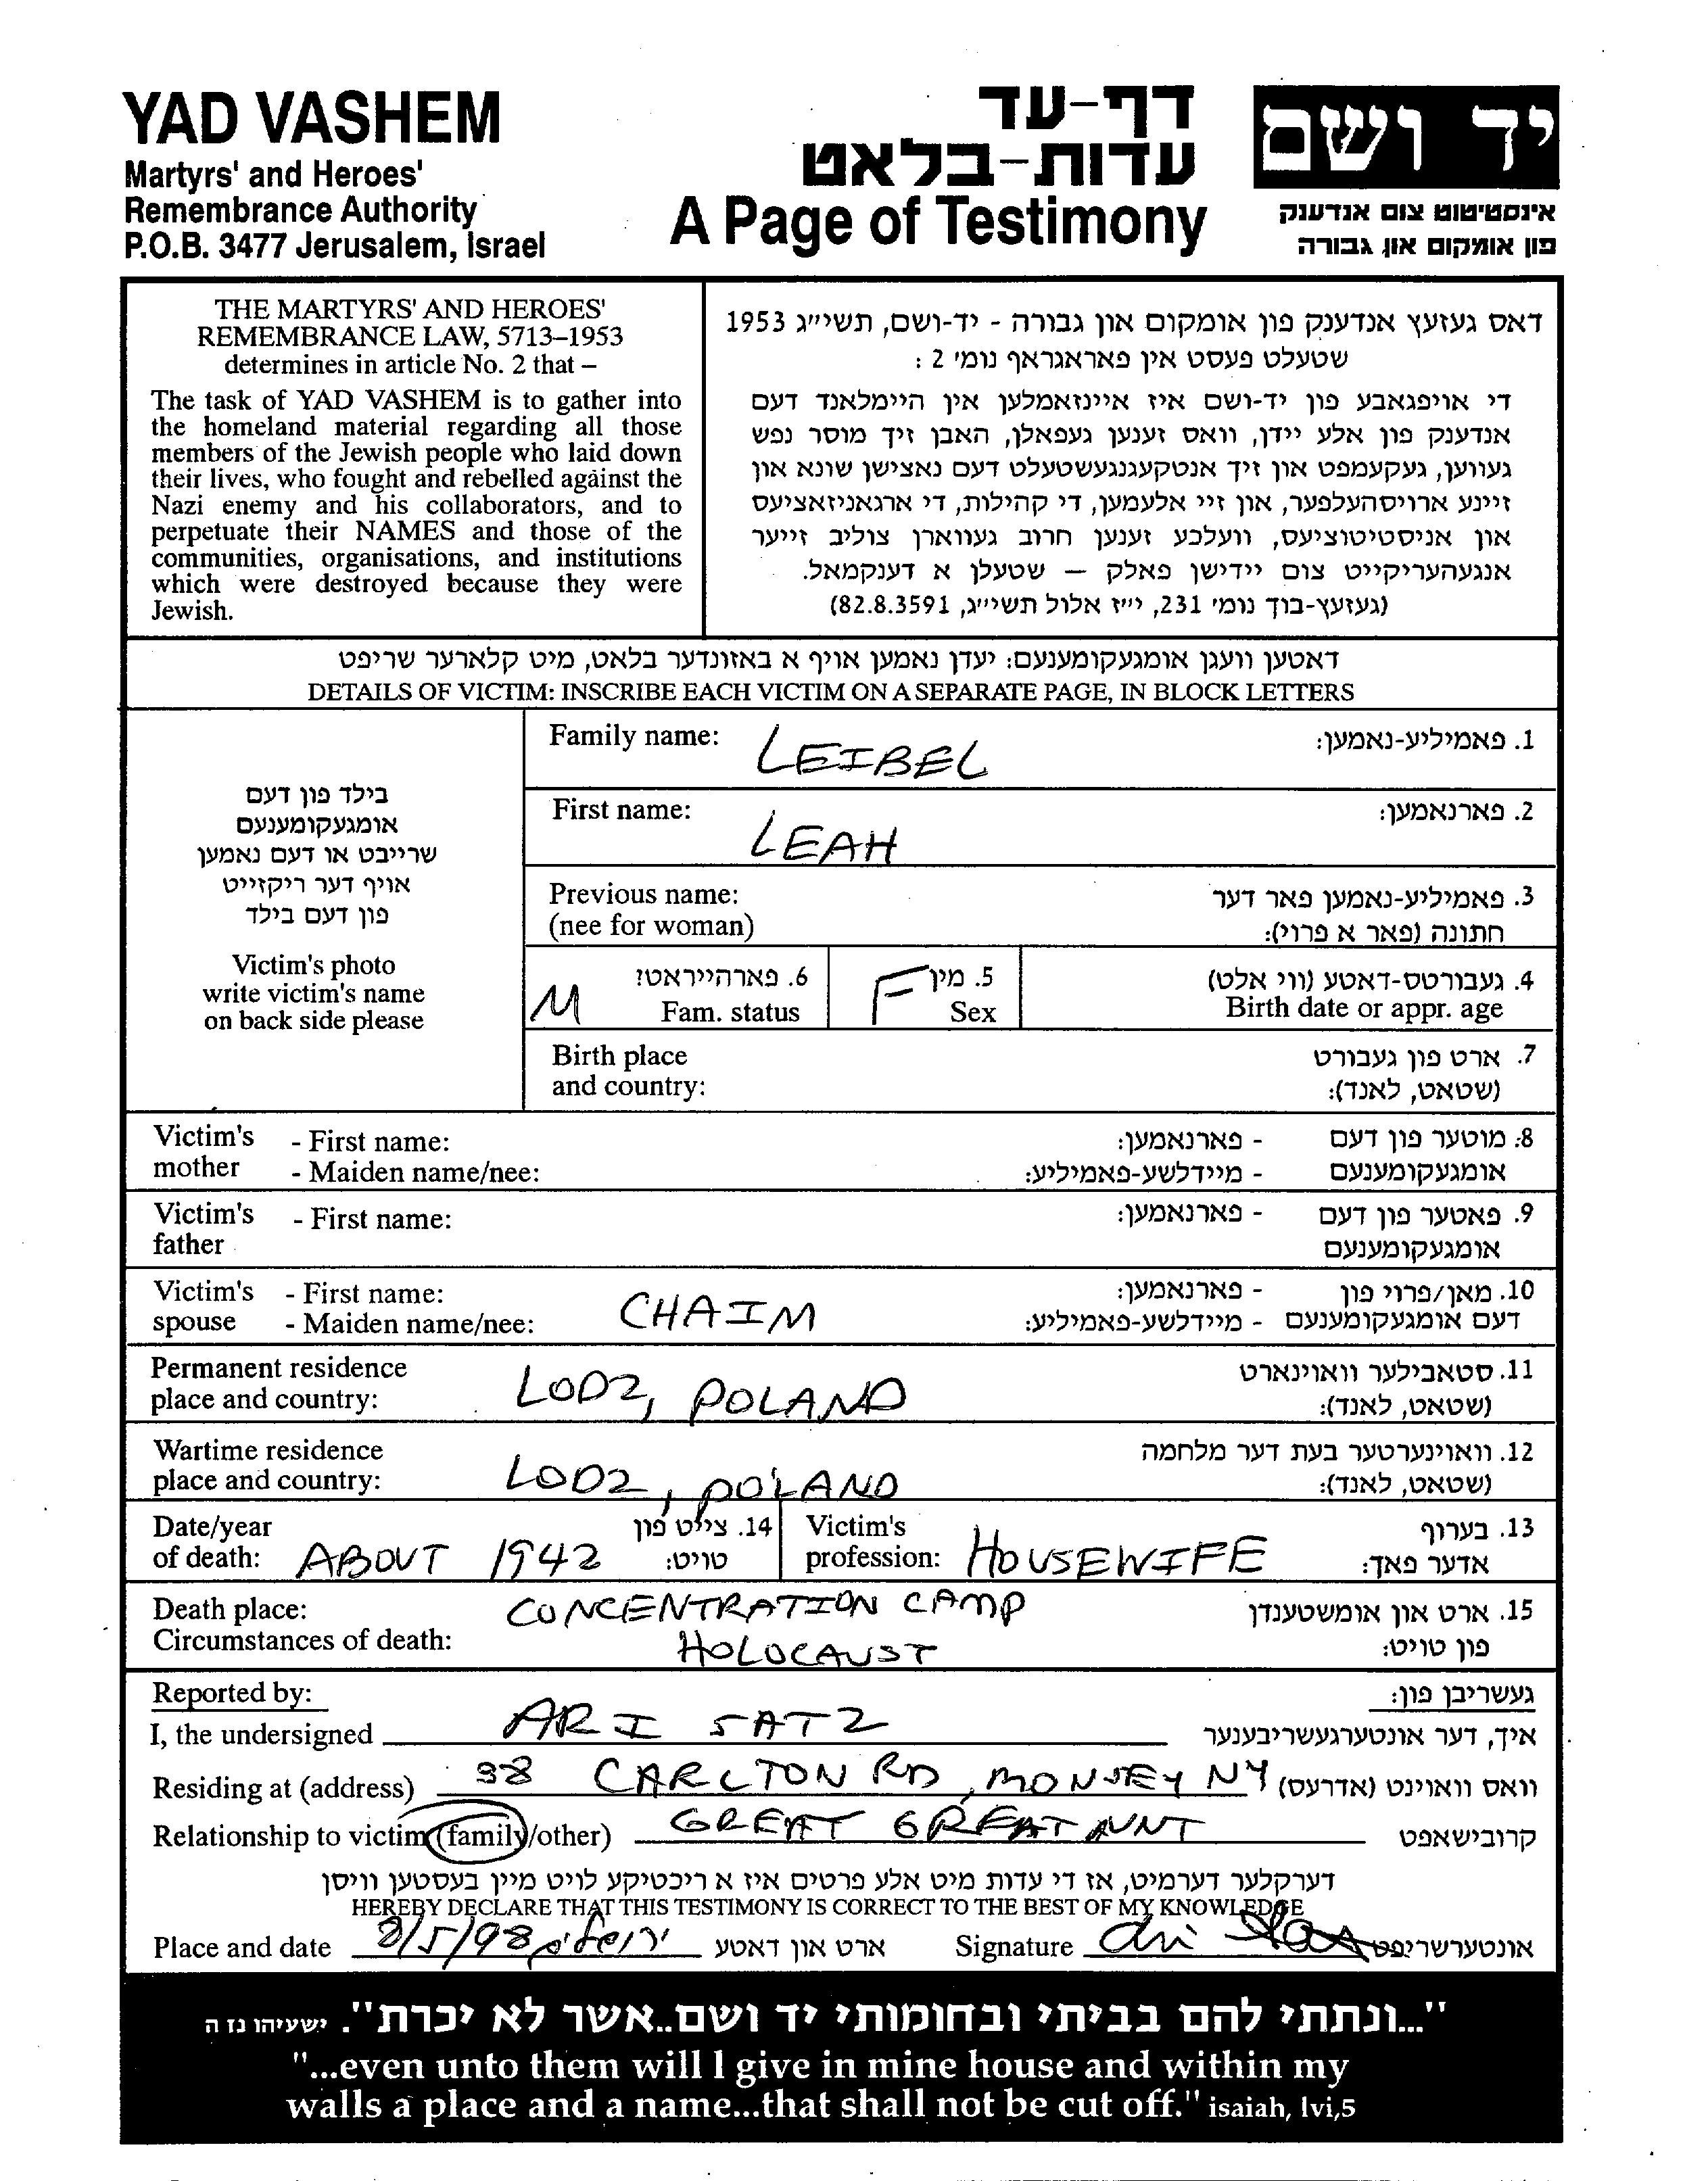 YAD VASHEM
Martyrs' and Heroes'
Remembrance Authority
P.O.B. 3477 Jerusalem, Israel
דף-עד
עדות-בלאט
A Page of Testimony
יד ושם
אינסטיטוט צום אנדענק
פון אומקום און גבורה
THE MARTYRS' AND HEROES'
REMEMBRANCE LAW, 5713–1953
determines in article No. 2 that –
The task of YAD VASHEM is to gather into
the homeland material regarding all those
members of the Jewish people who laid down
their lives, who fought and rebelled against the
Nazi enemy and his collaborators, and to
perpetuate their NAMES and those of the
communities, organisations, and institutions
which were destroyed because they were
Jewish.
דאס געזעץ אנדענק פון אומקום און גבורה - יד-ושם, תשי״ג 1953
שטעלט פעסט אין פאראגראף נומ' 2 :
די אויפגאבע פון יד-ושם איז איינזאמלען אין היימלאנד דעם
אנדענק פון אלע יידן, וואס זענען געפאלן, האבן זיך מוסר נפש
געווען, געקעמפט און זיך אנטקעגנגעשטעלט דעם נאצישן שונא און
זיינע ארויסהעלפער, און זיי אלעמען, די קהילות, די ארגאניזאציעס
און אניסטיטוציעס, וועלכע זענען חרוב געווארן צוליב זייער
אנגעהעריקייט צום יידישן פאלק — שטעלן א דענקמאל.
(געזעץ-בוך נומ' 231, י״ז אלול תשי״ג, 82.8.3591)
דאטען וועגן אומגעקומענעם: יעדן נאמען אויף א באזונדער בלאט, מיט קלארער שריפט
DETAILS OF VICTIM: INSCRIBE EACH VICTIM ON A SEPARATE PAGE, IN BLOCK LETTERS
בילד פון דעם
אומגעקומענעם
שרייבט או דעם נאמען
אויף דער ריקזייט
פון דעם בילד
Victim's photo
write victim's name
on back side please
Family name: LEIBEL 1. פאמיליע-נאמען:
First name: LEAH 2. פארנאמען:
Previous name: 3. פאמיליע-נאמען פאר דער
(nee for woman) חתונה (פאר א פרוי):
M 6. פארהייראט? F 5. מין 4. געבורטס-דאטע (ווי אלט)
Fam. status Sex Birth date or appr. age
Birth place 7. ארט פון געבורט
and country: (שטאט, לאנד):
Victim's - First name: - פארנאמען: 8. מוטער פון דעם
mother - Maiden name/nee: - מיידלשע-פאמיליע: אומגעקומענעם
Victim's - First name: - פארנאמען: 9. פאטער פון דעם
father אומגעקומענעם
Victim's - First name: CHAIM - פארנאמען: 10. מאן/פרוי פון
spouse - Maiden name/nee: - מיידלשע-פאמיליע: דעם אומגעקומענעם
Permanent residence 11. סטאבילער וואוינארט
place and country: LODZ, POLAND (שטאט, לאנד):
Wartime residence 12. וואוינערטער בעת דער מלחמה
place and country: LODZ, POLAND (שטאט, לאנד):
Date/year 14. צייט פון Victim's 13. בערוף
of death: ABOUT 1942 טויט: profession: HOUSEWIFE אדער פאך:
Death place: CONCENTRATION CAMP 15. ארט און אומשטענדן
Circumstances of death: HOLOCAUST פון טויט:
Reported by: געשריבן פון:
I, the undersigned ARI SATZ איך, דער אונטערגעשריבענער
Residing at (address) 38 CARLTON RD, MONSEY NY וואס וואוינט (אדרעס)
Relationship to victim (family/other) GREAT GREAT AUNT קרובישאפט
דערקלער דערמיט, אז די עדות מיט אלע פרטים איז א ריכטיקע לויט מיין בעסטען וויסן
HEREBY DECLARE THAT THIS TESTIMONY IS CORRECT TO THE BEST OF MY KNOWLEDGE
Place and date 8/5/98 ירושלים ארט און דאטע Signature Ari אונטערשריפט
"...ונתתי להם בביתי ובחומותי יד ושם..אשר לא יכרת". ישעיהו נז ה
"...even unto them will I give in mine house and within my
walls a place and a name...that shall not be cut off." isaiah, lvi,5